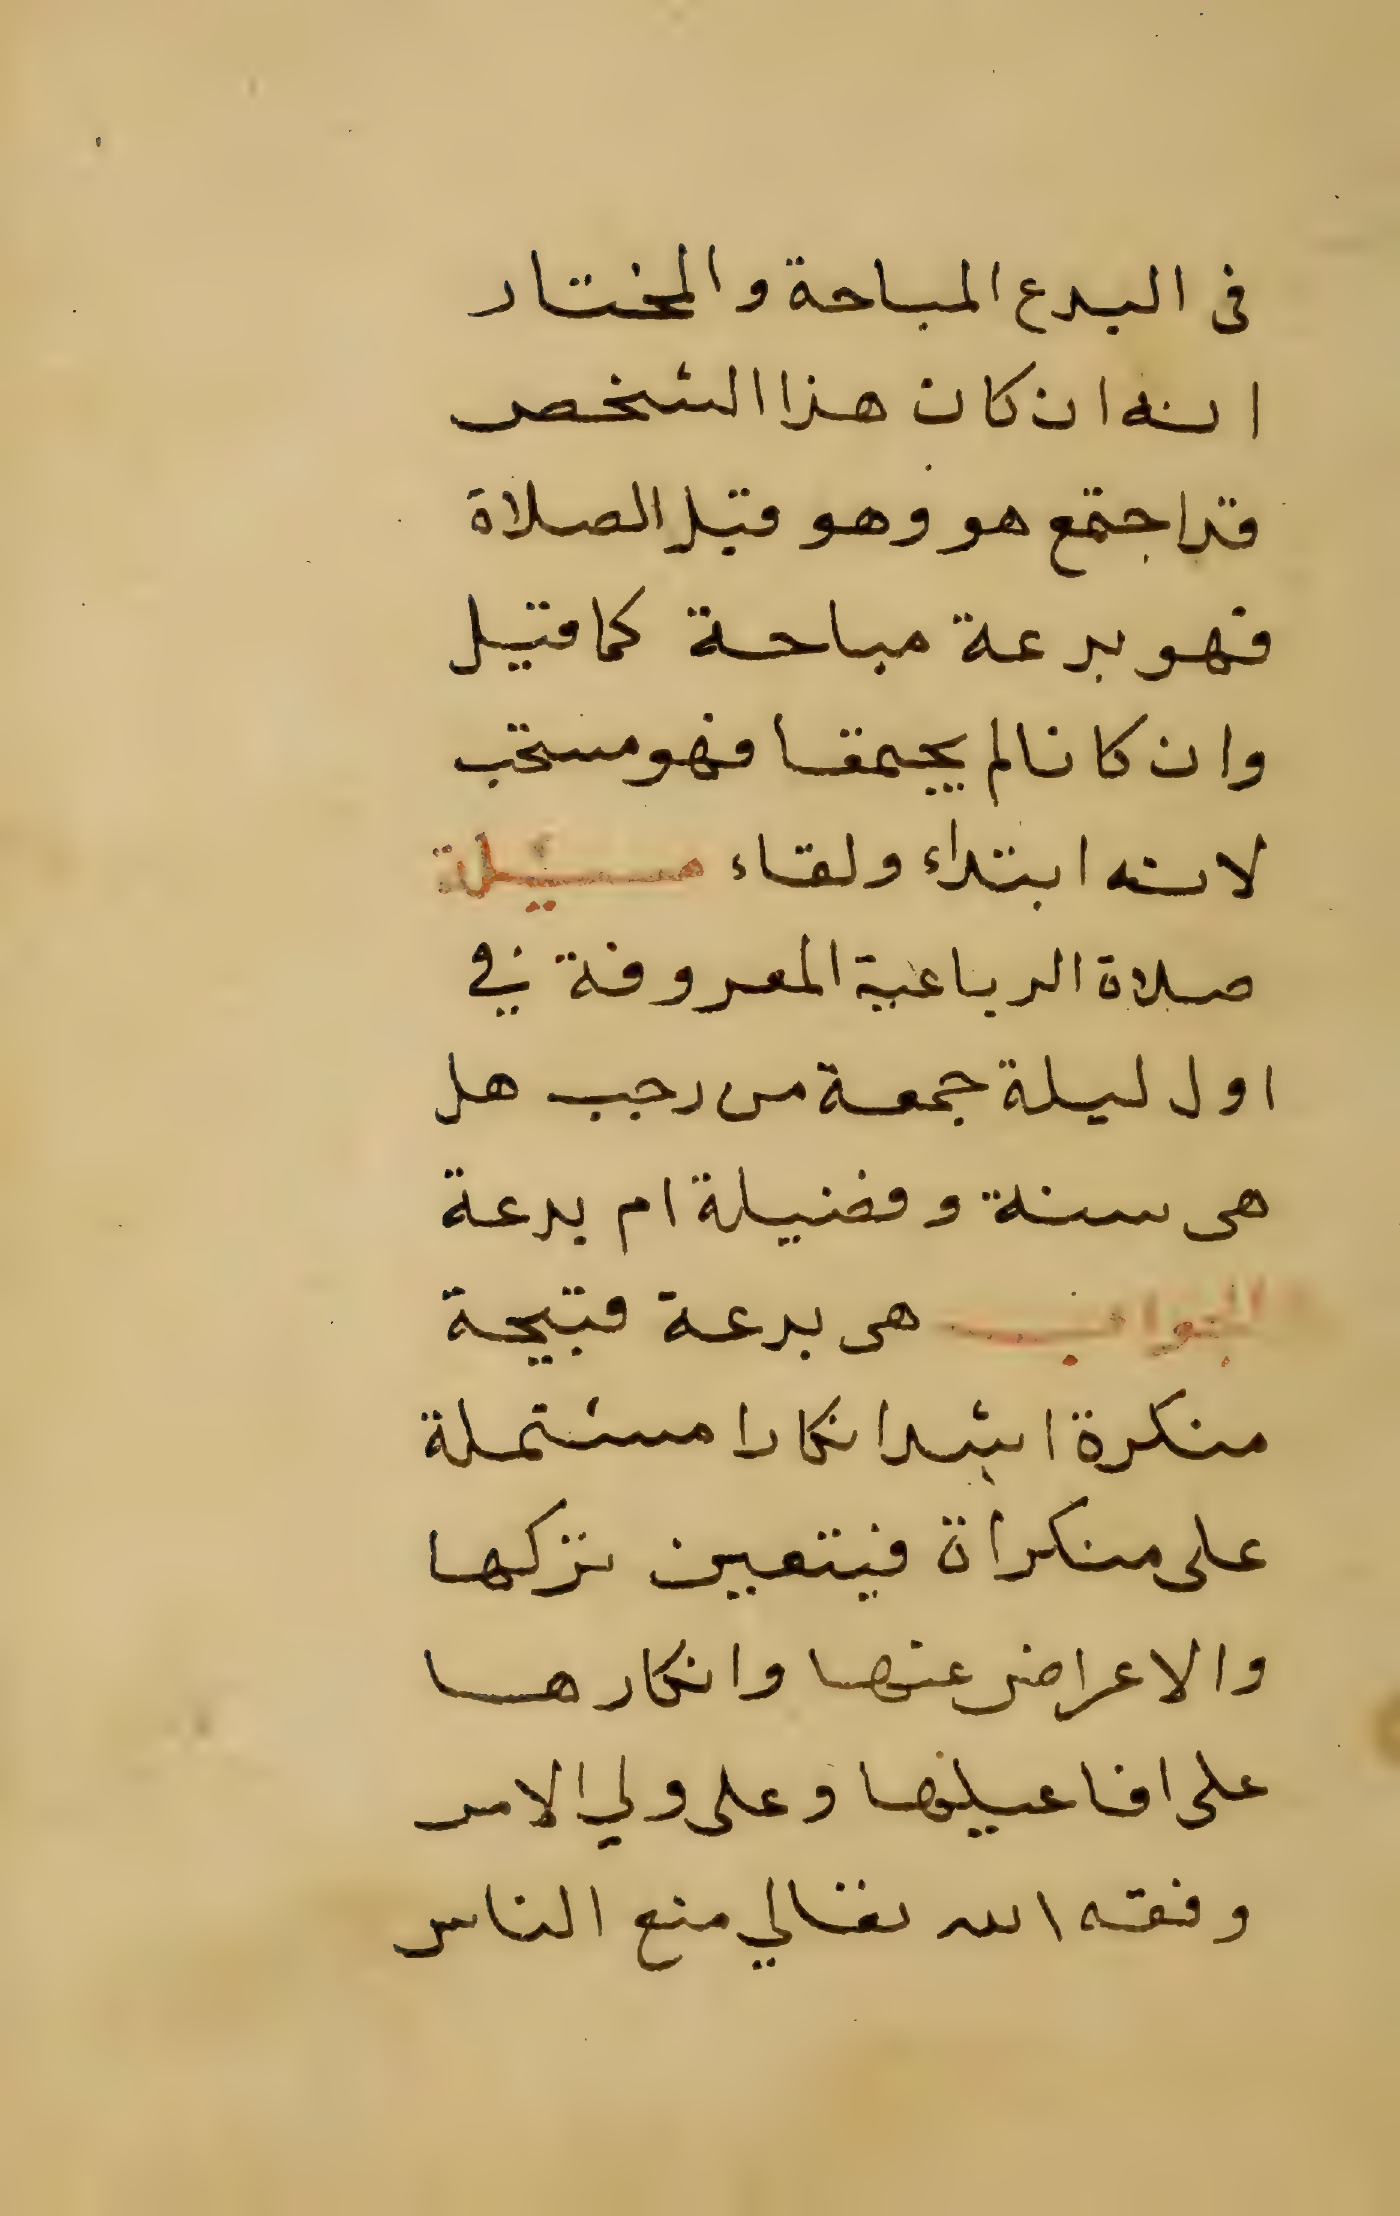 فى البدع المباحة والمختار
انه ان كان هذا الشخص
قد اجتمع هو وهو قبل الصلاة
فهو بدعة مباحة كما قيل
وان كانا لم يجتمعا فهو مستحب
لانه ابتداء ولقاء مسئلة
صلاة الرباعية المعروفة في
اول ليلة جمعة من رجب هل
هى سنة وفضيلة ام بدعة
الجواب هى بدعة قبيحة
منكرة اشد انكارا مشتملة
على منكراة فيتعين تركها
والاعراض عنها وانكارها
على افاعيلها وعلى ولي الامر
وفقه الله تعالي منع الناس